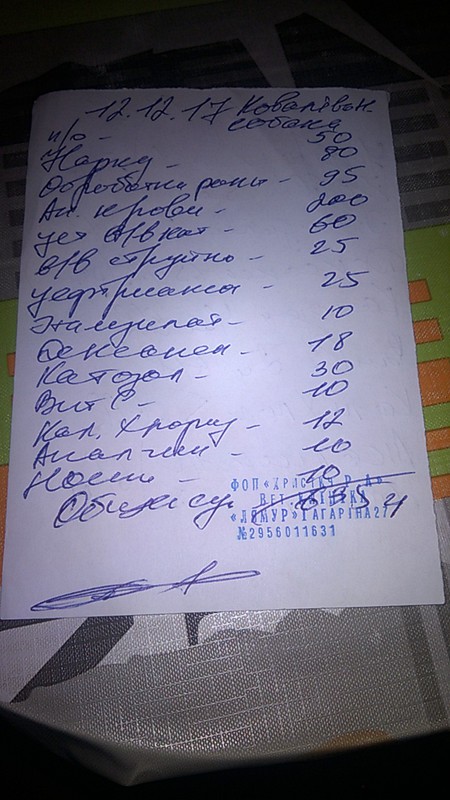 12.12.17 Ковалівськ.
собака
п/о - 50
Наркоз - 80
Обробка рани - 95
Ан. крови - 200
уст в/в кат - 60
в/в струйно - 25
Цефтриаксон - 25
Этамзилат - 10
Дексамет - 18
Катозал - 30
Вит С - 10
Кал. Хлорид - 12
Анальгин - 10
Ношпа - 10
ФОП «ХРИСТИЧ Р.А»
ВЕТ
«ЛЕМУР» ГАГАРІНА27
№2956011631